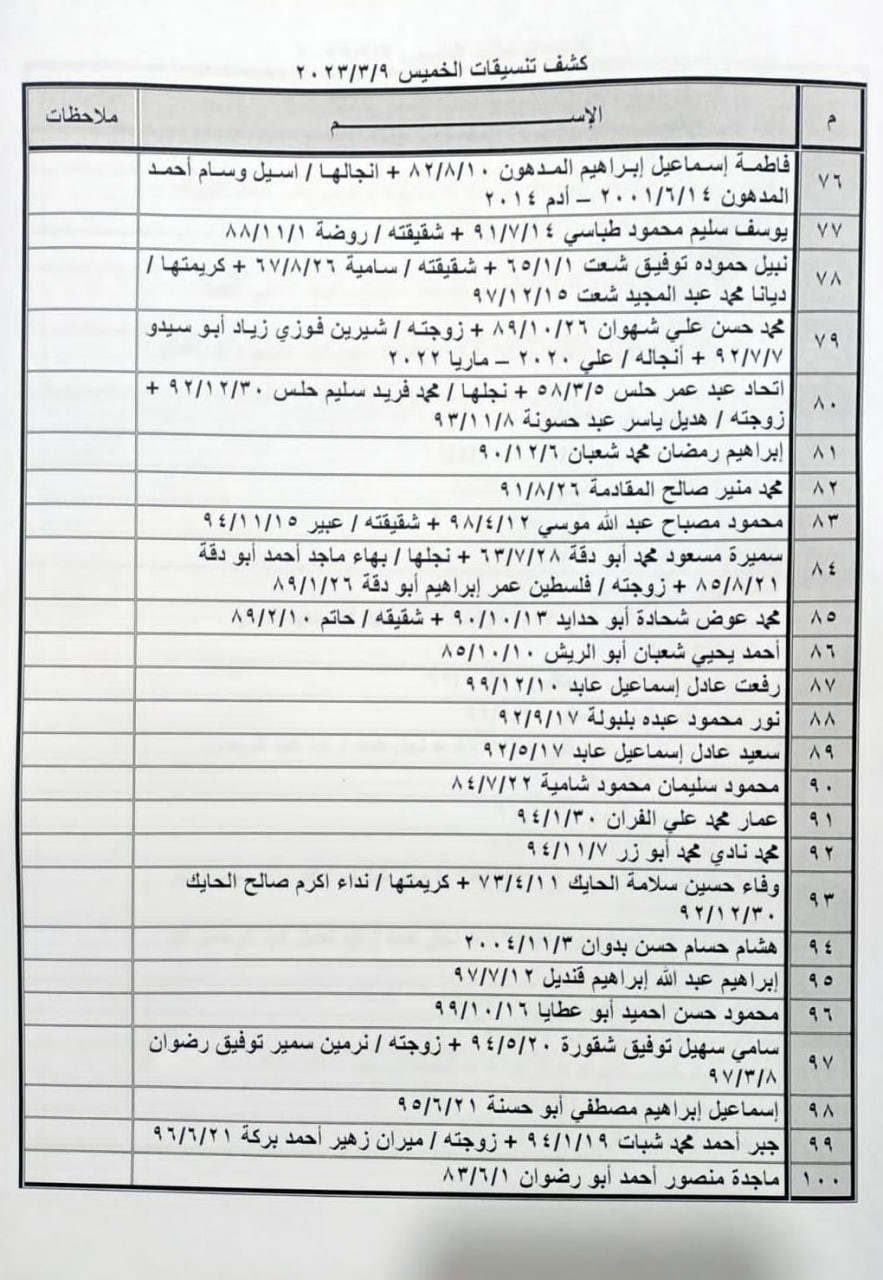 كشف تنسيقات الخميس ٢٠٢٣/٣/٩
م الإســـــــــــــــم ملاحظات
٧٦ فاطمة إسماعيل إبراهيم المدهون ٨٢/٨/١٠ + انجالها / اسيل وسام أحمد
المدهون ٢٠٠١/٦/١٤ – أدم ٢٠١٤
٧٧ يوسف سليم محمود طباسي ٩١/٧/١٤ + شقيقته / روضة ٨٨/١١/١
٧٨ نبيل حموده توفيق شعت ٦٥/١/١ + شقيقته / سامية ٦٧/٨/٢٦ + كريمتها /
ديانا محمد عبد المجيد شعت ٩٧/١٢/١٥
٧٩ محمد حسن علي شهوان ٨٩/١٠/٢٦ + زوجته / شيرين فوزي زياد أبو سيدو
٩٢/٧/٧ + أنجاله / علي ٢٠٢٠ – ماريا ٢٠٢٢
٨٠ اتحاد عبد عمر حلس ٥٨/٣/٥ + نجلها / محمد فريد سليم حلس ٩٢/١٢/٣٠ +
زوجته / هديل ياسر عبد حسونة ٩٣/١١/٨
٨١ إبراهيم رمضان محمد شعبان ٩٠/١٢/٦
٨٢ محمد منير صالح المقادمة ٩١/٨/٢٦
٨٣ محمود مصباح عبد الله موسي ٩٨/٤/١٢ + شقيقته / عبير ٩٤/١١/١٥
٨٤ سميرة مسعود محمد أبو دقة ٦٣/٧/٢٨ + نجلها / بهاء ماجد أحمد أبو دقة
٨٥/٨/٢١ + زوجته / فلسطين عمر إبراهيم أبو دقة ٨٩/١/٢٦
٨٥ محمد عوض شحادة أبو حدايد ٩٠/١٠/١٣ + شقيقه / حاتم ٨٩/٢/١٠
٨٦ أحمد يحيي شعبان أبو الريش ٨٥/١٠/١٠
٨٧ رفعت عادل إسماعيل عابد ٩٩/١٢/١٠
٨٨ نور محمود عبده بلبولة ٩٢/٩/١٧
٨٩ سعيد عادل إسماعيل عابد ٩٢/٥/١٧
٩٠ محمود سليمان محمود شامية ٨٤/٧/٢٢
٩١ عمار محمد علي الفران ٩٤/١/٣٠
٩٢ محمد نادي محمد أبو زر ٩٤/١١/٧
٩٣ وفاء حسين سلامة الحايك ٧٣/٤/١١ + كريمتها / نداء اكرم صالح الحايك
٩٢/١٢/٣٠
٩٤ هشام حسام حسن بدوان ٢٠٠٤/١١/٣
٩٥ إبراهيم عبد الله إبراهيم قنديل ٩٧/٧/١٢
٩٦ محمود حسن احميد أبو عطايا ٩٩/١٠/١٦
٩٧ سامي سهيل توفيق شقورة ٩٤/٥/٢٠ + زوجته / نرمين سمير توفيق رضوان
٩٧/٣/٨
٩٨ إسماعيل إبراهيم مصطفي أبو حسنة ٩٥/٦/٢١
٩٩ جبر أحمد محمد شبات ٩٤/١/١٩ + زوجته / ميران زهير أحمد بركة ٩٦/٦/٢١
١٠٠ ماجدة منصور أحمد أبو رضوان ٨٣/٦/١